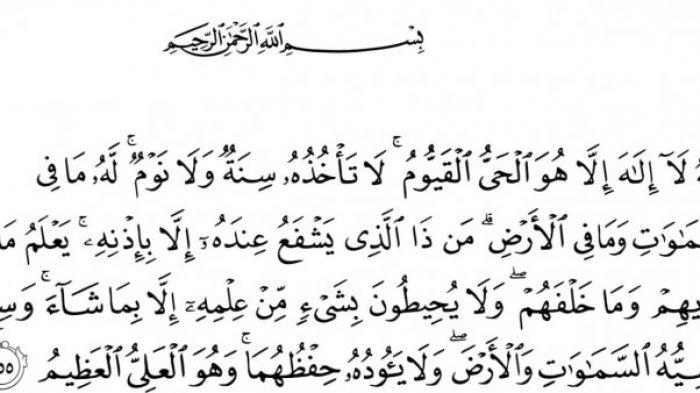 بِسْمِ اللَّهِ الرَّحْمَٰنِ الرَّحِيمِ
لَآ إِلَٰهَ إِلَّا هُوَ الْحَىُّ الْقَيُّومُ ۚ لَا تَأْخُذُهُۥ سِنَةٌ وَلَا نَوْمٌ ۚ لَّهُۥ مَا فِى
وَمَا فِى الْأَرْضِ ۗ مَن ذَا الَّذِى يَشْفَعُ عِندَهُۥٓ إِلَّا بِإِذْنِهِۦ ۚ يَعْلَمُ مَا
وَمَا خَلْفَهُمْ ۖ وَلَا يُحِيطُونَ بِشَىْءٍ مِّنْ عِلْمِهِۦٓ إِلَّا بِمَا شَآءَ ۚ
السَّمَٰوَٰتِ وَالْأَرْضَ ۖ وَلَا يَـُٔودُهُۥ حِفْظُهُمَا ۚ وَهُوَ الْعَلِىُّ الْعَظِيمُ